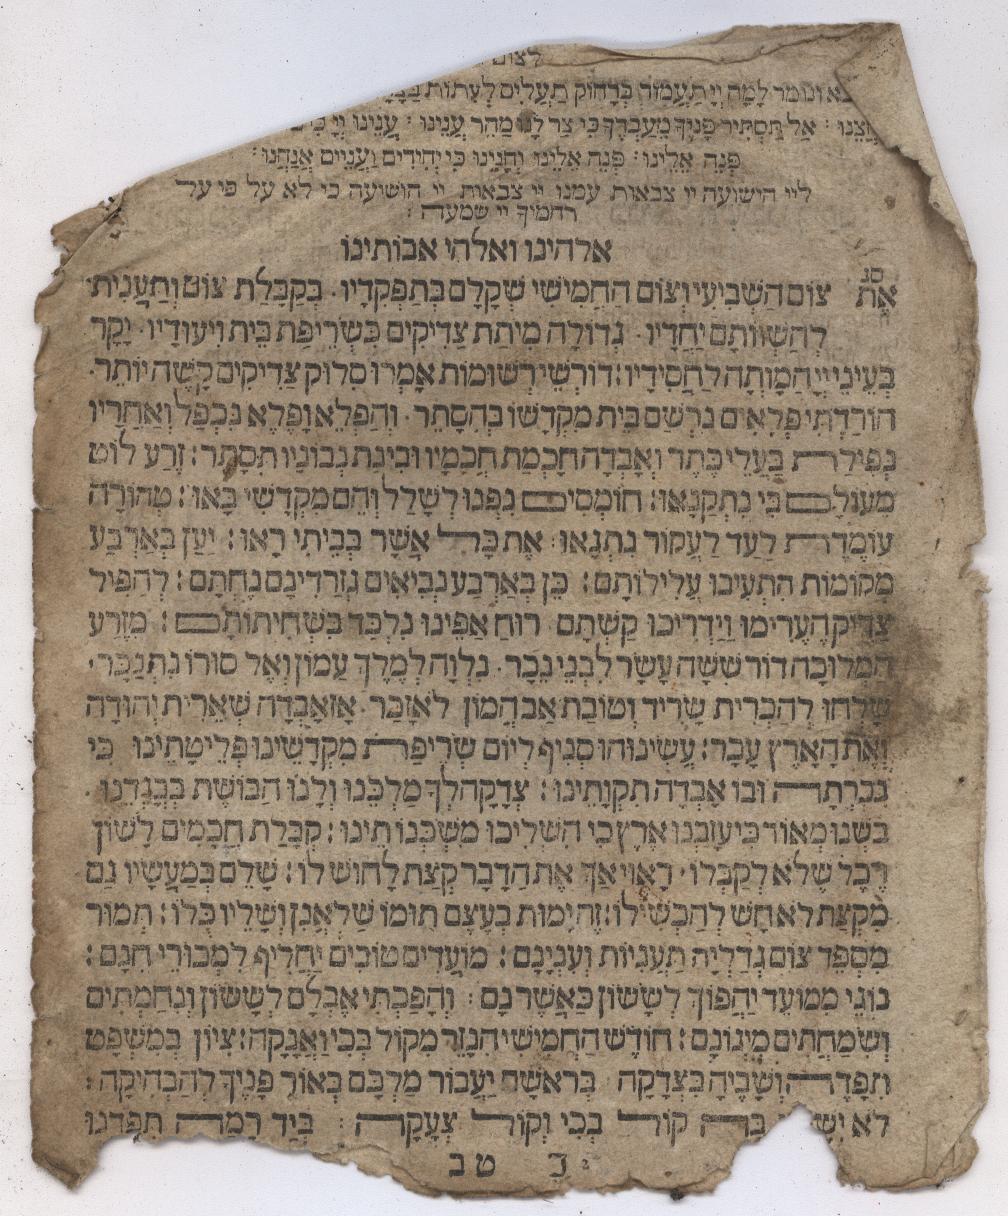 לצום
ונומר לָמָה יְיָ תַּעֲמוֹד בְּרָחוֹק תַּעֲלִים לְעִתּוֹת
אַל תַּסְתִּיר פָּנֶיךָ מֵעַבְדֶּךָ כִּי צַר לָנוּ מַהֵר עֲנֵינוּ : עֲנֵינוּ יְיָ
פְּנֵה אֵלֵינוּ : פְּנֵה אלינו וְחָנֵּינוּ כִּי יְחִידִים וַעֲנִיִּים אֲנַחְנוּ :
ליי הישועה יי צבאות עמנו יי צבאות יי הושיעה כי לא על פי על
רחמיך יי שמעה :
אלהינו ואלהי אבותינו
סג
אֶת צוֹם הַשְּׁבִיעִי וְצוֹם הַחֲמִישִׁי שְׁקָלָם בְּתַפְקִדָיו . בְּקַבָּלַת צוֹם וְתַעֲנִית
לְהַשְׁווֹתָם יַחְדָּיו . גְּדוֹלָה מִיתַת צַדִּיקִים כִּשְׂרֵיפַת בֵּית וִיעוּדָיו . יָקָר
בְּעֵינֵי יְיָ הַמָּוְתָה לַחֲסִידָיו : דּוֹרְשֵׁי רְשׁוּמוֹת אָמְרוּ סִלּוּק צַדִּיקִים קָשֶׁה יוֹתֵר .
הוֹרַדְתִּי פְּלָאִים נִרְשַׁם בֵּית מִקְדָּשׁוֹ בְּהֶסְתֵּר . וְהַפְלֵא וָפֶלֶא נִכְפַּל וְאַחֲרָיו
נְפִילַת בַּעֲלֵי כֶתֶר וְאָבְדָה חָכְמַת חֲכָמָיו וּבִינַת נְבוֹנָיו תִּסְתַּתֵּר : זֶרַע לוֹט
מֵעוֹלָם בִּי נִתְקַנְּאוּ : חוֹמְסִים נִפְנוּ לְשָׁלָל וְהֵם מִקְדָּשִׁי בָּאוּ : טְהוֹרָה
עוֹמֶדֶת לָעַד לַעֲקוֹר נִתְנַאוּ אֶת כָּל אֲשֶׁר בְּבֵיתִי רָאוּ : יַעַן בְּאַרְבַּע
מְקוֹמוֹת הִתְעִיבוּ עֲלִילוֹתָם : כֵּן בְּאַרְבַּע נְבִיאִים נִגְזַר דִּינָם נַחְתָּם : לְהַפִּיל
צַדִּיק הֶעֱרִימוּ וַיַּדְרִיכוּ קַשְׁתָּם רוּחַ אַפֵּינוּ נִלְכַּד בִּשְׁחִיתוֹתָם : מִזֶּרַע
הַמְּלוּכָה דּוֹר שִׁשָּׁה עָשָׂר לִבְנֵי נֵכָר . נִלְוָה לְמֶלֶךְ עַמּוֹן וְאֶל סוֹרוֹ נִתְנַכַּר .
שְׁלָחוֹ לְהַכְרִית שָׂרִיד וְטוֹבַת אַב הֲמוֹן לֹא זָכַר . אָז אָבְדָה שְׁאֵרִית יְהוּדָה
וְאֶת הָאָרֶץ עָכַר : עֲשִׂינוּהוּ סְנִיף לְיוֹם שְׂרֵיפַת מִקְדָּשֵׁינוּ פְּלֵיטָתֵינוּ כִּי
נִכְרְתָה וּבוֹ אָבְדָה תִקְוָתֵינוּ : צְדָקָה לְךָ מַלְכֵּנוּ וְלָנוּ הַבּוֹשֶׁת בְּבִגְדֵנוּ .
בּשְׁנוּ מְאוֹד כִּי עָזַבְנוּ אָרֶץ כִּי הִשְׁלִיכוּ מִשְׁכְּנוֹתֵינוּ : קַבָּלַת חֲכָמִים לָשׁוֹן
רֶכֶל שֶׁלֹּא לְקַבְּלוֹ . רָאוּי אַךְ אֶת הַדָּבָר קְצָת לָחוּשׁ לוֹ : שָׁלֵם בְּמַעֲשָׂיו גַּם
מִקְצַת לֹא חָשׁ לְהַכְשִׁילוֹ : זֶה יָמוּת בְּעֶצֶם תּוּמּוֹ שַׁלְאֲנָן וְשָׁלֵיו כֻּלּוֹ : תְּמוּר
מִסְפֵּד צוֹם גְּדַלְיָה תַּעֲנִיּוֹת וְעִנְיָנָם : מוֹעֲדִים טוֹבִים יַחֲלִיף לִמְכוּרֵי חִנָּם :
נוּגֵי מִמּוֹעֵד יַהֲפוֹךְ לְשָׂשׂוֹן כַּאֲשֶׁר נָם : וְהָפַכְתִּי אֶבְלָם לְשָׂשׂוֹן וְנִחַמְתִּים
וְשִׂמַּחְתִּים מִיגוֹנָם : חוֹדֶשׁ הַחֲמִישִׁי הִנָּזֵר מִקּוֹל בְּכִי וַאֲנָקָה : צִיּוֹן בְּמִשְׁפָּט
תִּפָּדֶה וְשָׁבֶיהָ בִּצְדָקָה בְּרֹאשָׁהּ יַעֲבוֹר מַלְכָּם בְּאוֹר פָּנֶיךָ לְהַבְהִיקָה :
לֹא בָּהּ קוֹל בְּכִי וְקוֹל צְעָקָה : בְּיַד רָמָה תִּפְדֵּנוּ
ט ב